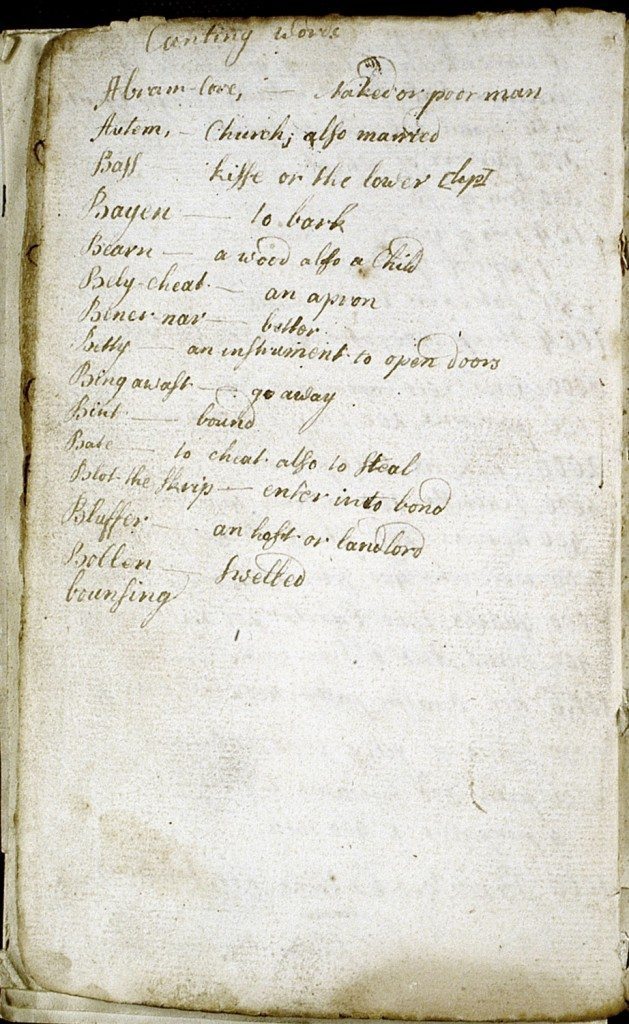 Canting words
Abram-Cove, — Naked or poor man
Autem, — Church; also married
Bass — kisse or the lower
Bayen — to bark
Bearn — a wood also a Child
Bely-cheat — an apron
Bener nar — better
Betty — an instrument to open doors
Bing awast — go away
Bint — bound
Bate — to cheat also to Steal
Blot the Skrip — enter into bond
Bluffer — an host or landlord
Bollen — Swelled
bounsing